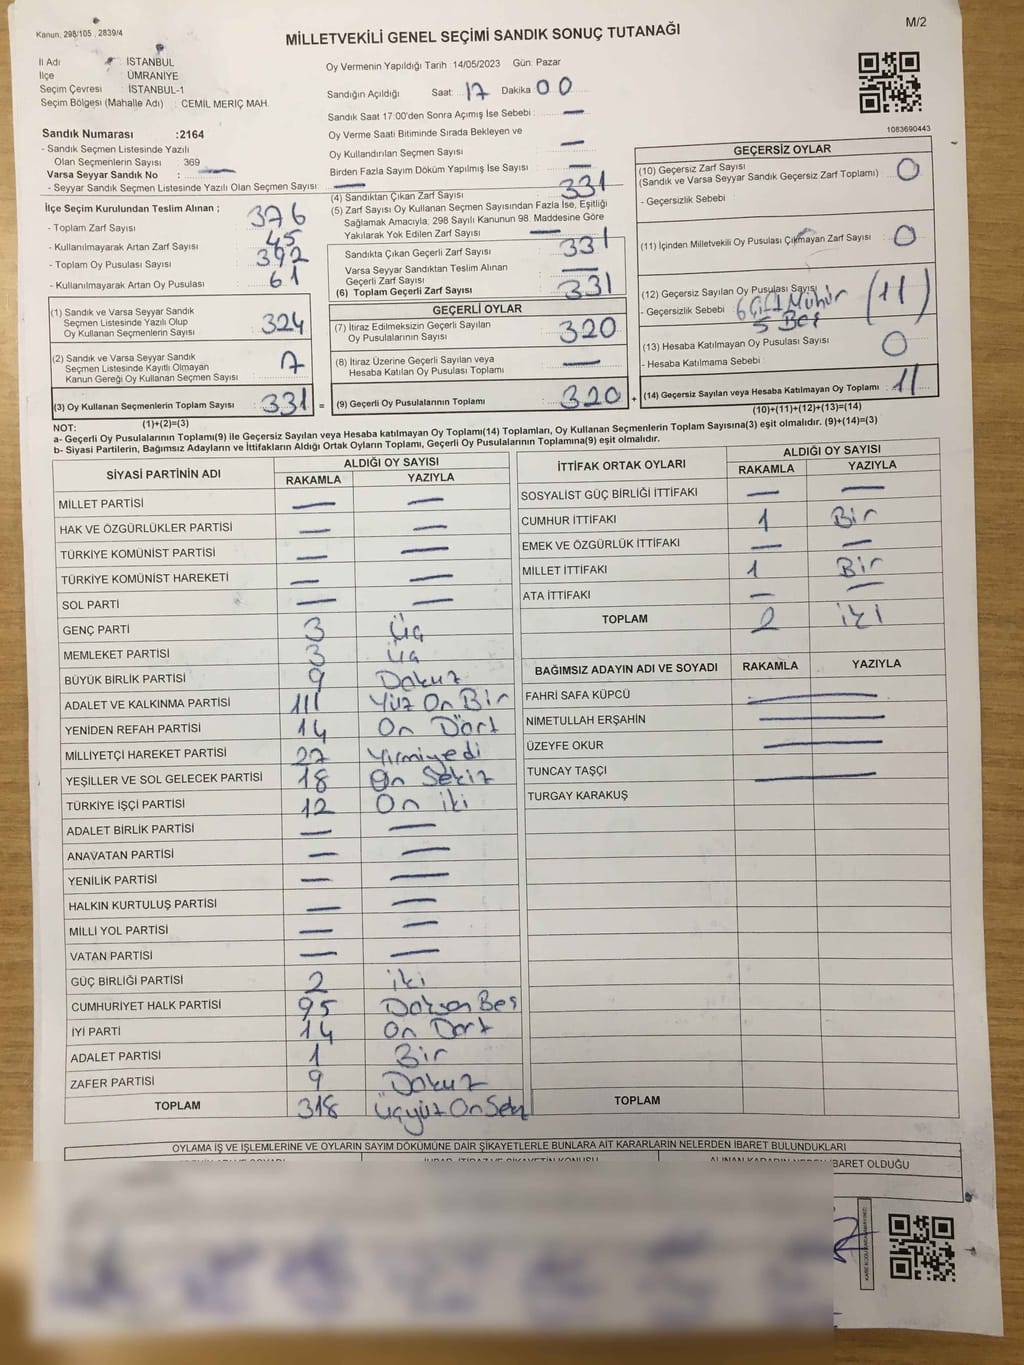 Kanun: 298/105 , 2839/4
M/2
MİLLETVEKİLİ GENEL SEÇİMİ SANDIK SONUÇ TUTANAĞI
İl Adı : İSTANBUL
İlçe : ÜMRANİYE
Seçim Çevresi : İSTANBUL-1
Seçim Bölgesi (Mahalle Adı) : CEMİL MERİÇ MAH.
Sandık Numarası :2164
- Sandık Seçmen Listesinde Yazılı
Olan Seçmenlerin Sayısı : 369
Varsa Seyyar Sandık No : —
- Seyyar Sandık Seçmen Listesinde Yazılı Olan Seçmen Sayısı: —
Oy Vermenin Yapıldığı Tarih :14/05/2023 Gün: Pazar
Sandığın Açıldığı Saat: 17 Dakika 00
Sandık Saat 17:00'den Sonra Açımış İse Sebebi : —
Oy Verme Saati Bitiminde Sırada Bekleyen ve
Oy Kullandırılan Seçmen Sayısı : —
Birden Fazla Sayım Döküm Yapılmış İse Sayısı : —
1083690443
İlçe Seçim Kurulundan Teslim Alınan ;
- Toplam Zarf Sayısı : 376
- Kullanılmayarak Artan Zarf Sayısı : 45
- Toplam Oy Pusulası Sayısı : 392
- Kullanılmayarak Artan Oy Pusulası : 61
(1) Sandık ve Varsa Seyyar Sandık
Seçmen Listesinde Yazılı Olup
Oy Kullanan Seçmenlerin Sayısı : 324
(2) Sandık ve Varsa Seyyar Sandık
Seçmen Listesinde Kayıtlı Olmayan
Kanun Gereği Oy Kullanan Seçmen Sayısı : 7
(3) Oy Kullanan Seçmenlerin Toplam Sayısı : 331 =
(1)+(2)=(3)
(4) Sandıktan Çıkan Zarf Sayısı : 331
(5) Zarf Sayısı Oy Kullanan Seçmen Sayısından Fazla İse, Eşitliği
Sağlamak Amacıyla; 298 Sayılı Kanunun 98. Maddesine Göre
Yakılarak Yok Edilen Zarf Sayısı : —
Sandıkta Çıkan Geçerli Zarf Sayısı : 331
Varsa Seyyar Sandıktan Teslim Alınan
Geçerli Zarf Sayısı : —
(6) Toplam Geçerli Zarf Sayısı : 331
GEÇERLİ OYLAR
(7) İtiraz Edilmeksizin Geçerli Sayılan
Oy Pusulalarının Sayısı : 320
(8) İtiraz Üzerine Geçerli Sayılan veya
Hesaba Katılan Oy Pusulası Toplamı : —
(9) Geçerli Oy Pusulalarının Toplamı : 320 +
GEÇERSİZ OYLAR
(10) Geçersiz Zarf Sayısı : 0
(Sandık ve Varsa Seyyar Sandık Geçersiz Zarf Toplamı)
- Geçersizlik Sebebi :
(11) İçinden Milletvekili Oy Pusulası Çıkmayan Zarf Sayısı : 0
(12) Geçersiz Sayılan Oy Pusulası Sayısı : (11)
- Geçersizlik Sebebi : 6 Çift Mühür
5 Boş
(13) Hesaba Katılmayan Oy Pusulası Sayısı : 0
- Hesaba Katılmama Sebebi :
(14) Geçersiz Sayılan veya Hesaba Katılmayan Oy Toplamı : 11
(10)+(11)+(12)+(13)=(14)
NOT:
a- Geçerli Oy Pusulalarının Toplamı(9) ile Geçersiz Sayılan veya Hesaba katılmayan Oy Toplamı(14) Toplamları, Oy Kullanan Seçmenlerin Toplam Sayısına(3) eşit olmalıdır. (9)+(14)=(3)
b- Siyasi Partilerin, Bağımsız Adayların ve İttifakların Aldığı Ortak Oyların Toplamı, Geçerli Oy Pusulalarının Toplamına(9) eşit olmalıdır.
SİYASİ PARTİNİN ADI ALDIĞI OY SAYISI
RAKAMLA YAZIYLA
MİLLET PARTİSİ — —
HAK VE ÖZGÜRLÜKLER PARTİSİ — —
TÜRKİYE KOMÜNİST PARTİSİ — —
TÜRKİYE KOMÜNİST HAREKETİ — —
SOL PARTİ — —
GENÇ PARTİ 3 Üç
MEMLEKET PARTİSİ 3 Üç
BÜYÜK BİRLİK PARTİSİ 9 Dokuz
ADALET VE KALKINMA PARTİSİ 111 Yüz On Bir
YENİDEN REFAH PARTİSİ 14 On Dört
MİLLİYETÇİ HAREKET PARTİSİ 27 Yirmiyedi
YEŞİLLER VE SOL GELECEK PARTİSİ 18 On Sekiz
TÜRKİYE İŞÇİ PARTİSİ 12 On iki
ADALET BİRLİK PARTİSİ — —
ANAVATAN PARTİSİ — —
YENİLİK PARTİSİ — —
HALKIN KURTULUŞ PARTİSİ — —
MİLLİ YOL PARTİSİ — —
VATAN PARTİSİ — —
GÜÇ BİRLİĞİ PARTİSİ 2 iki
CUMHURİYET HALK PARTİSİ 95 Doksan Beş
İYİ PARTİ 14 On Dört
ADALET PARTİSİ 1 Bir
ZAFER PARTİSİ 9 Dokuz
TOPLAM 318 Üçyüz On Sekiz
İTTİFAK ORTAK OYLARI ALDIĞI OY SAYISI
RAKAMLA YAZIYLA
SOSYALİST GÜÇ BİRLİĞİ İTTİFAKI — —
CUMHUR İTTİFAKI 1 Bir
EMEK VE ÖZGÜRLÜK İTTİFAKI — —
MİLLET İTTİFAKI 1 Bir
ATA İTTİFAKI — —
TOPLAM 2 iki
BAĞIMSIZ ADAYIN ADI VE SOYADI RAKAMLA YAZIYLA
FAHRİ SAFA KÜPCÜ —
NİMETULLAH ERŞAHİN —
ÜZEYFE OKUR —
TUNCAY TAŞÇI —
TURGAY KARAKUŞ
TOPLAM
OYLAMA İŞ VE İŞLEMLERİNE VE OYLARIN SAYIM DÖKÜMÜNE DAİR ŞİKAYETLERLE BUNLARA AİT KARARLARIN NELERDEN İBARET BULUNDUKLARI
İBARET OLDUĞU